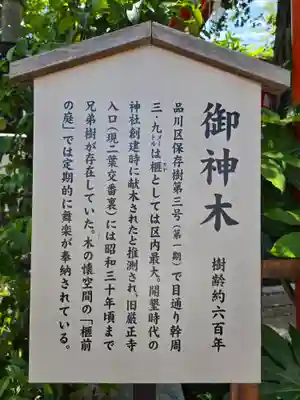 御神木
樹齢約六百年
品川区保存樹第三号(第一期)で目通り幹周
三・九メートルは榧としては区内最大。開墾時代の
神社創建時に献木されたと推測され、旧厳正寺
入口(現二葉交番裏)には昭和三十年頃まで
兄弟樹が存在していた。木の懐空間の「榧前
の庭」では定期的に舞楽が奉納されている。